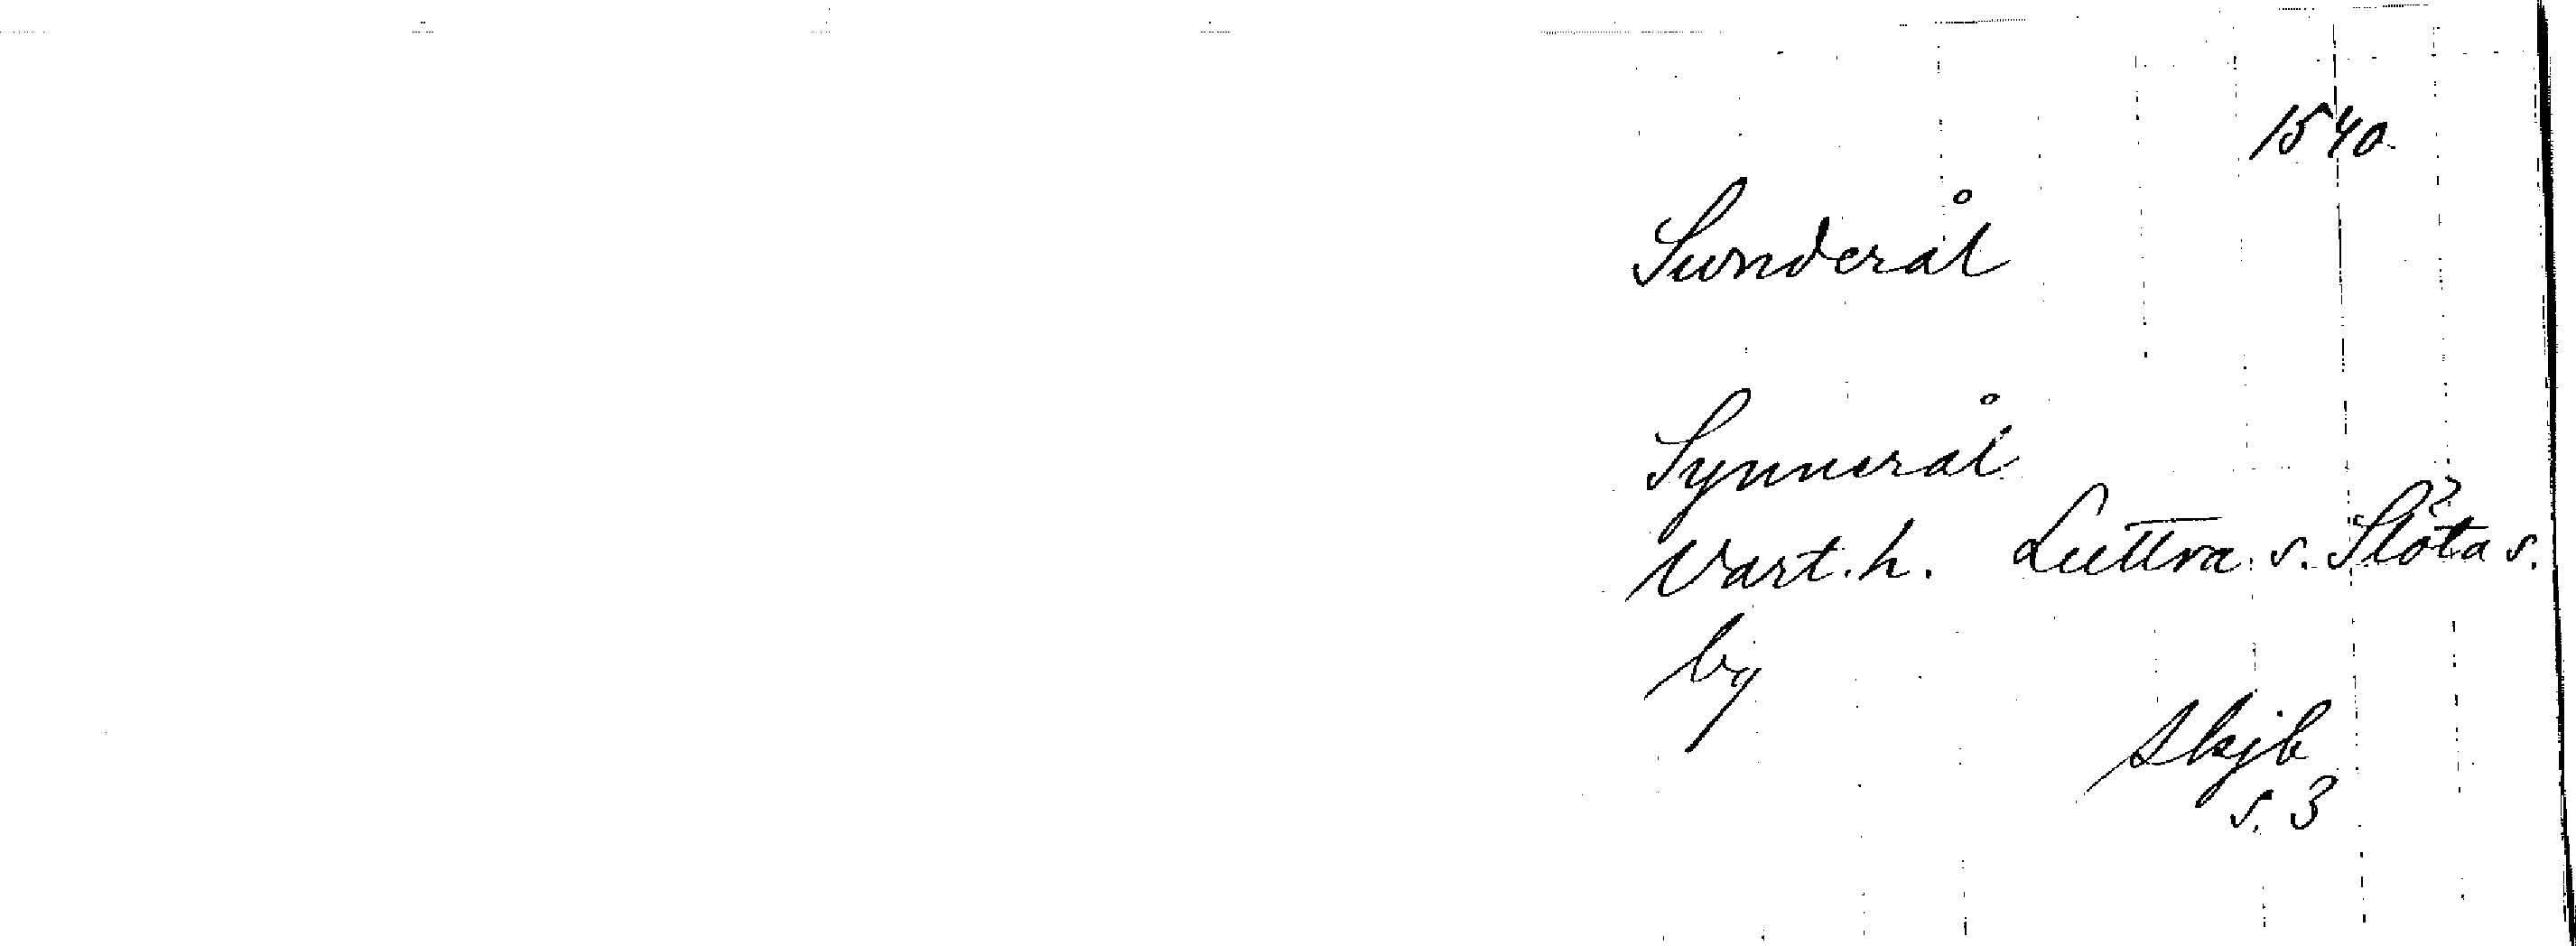 1540
Sunderål
Synnerål
Vart. h. Luttra s. Slöta s.
by
skjb
s. 3